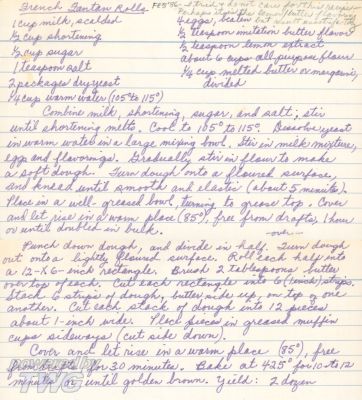 French Fantan Rolls FEB '86 - I tried & don't care for this recipe
1 cup milk, scalded
½ cup shortening
½ cup sugar
1 teaspoon salt
2 packages dry yeast
¼ cup warm water (105° to 115°)
4 eggs, beaten
½ teaspoon imitation butter flavor
½ teaspoon lemon extract
about 6 cups all-purpose flour
¼ cup melted butter or margarine,
divided
Combine milk, shortening, sugar, and salt; stir
until shortening melts. Cool to 105° to 115°. Dissolve yeast
in warm water in a large mixing bowl. Stir in milk mixture,
eggs and flavorings. Gradually stir in flour to make
a soft dough. Turn dough onto a floured surface,
and knead until smooth and elastic (about 5 minutes).
Place in a well-greased bowl, turning to grease top. Cover
and let rise in a warm place (85°), free from drafts, 1 hour
or until doubled in bulk.
-over-
Punch down dough, and divide in half. Turn dough
out onto a lightly floured surface. Roll each half into
a 12-X 6-inch rectangle. Brush 2 tablespoons butter
over top of each. Cut each rectangle into 6 (1 inch) strips.
Stack 6 strips of dough, butter side up, on top of one
another. Cut each stack of dough into 12 pieces
about 1-inch wide. Place pieces in greased muffin
cups sideways (cut side down).
Cover and let rise in a warm place (85°), free
from drafts for 30 minutes. Bake at 425° for 10 to 12
minutes or until golden brown. Yield: 2 dozen
TWG